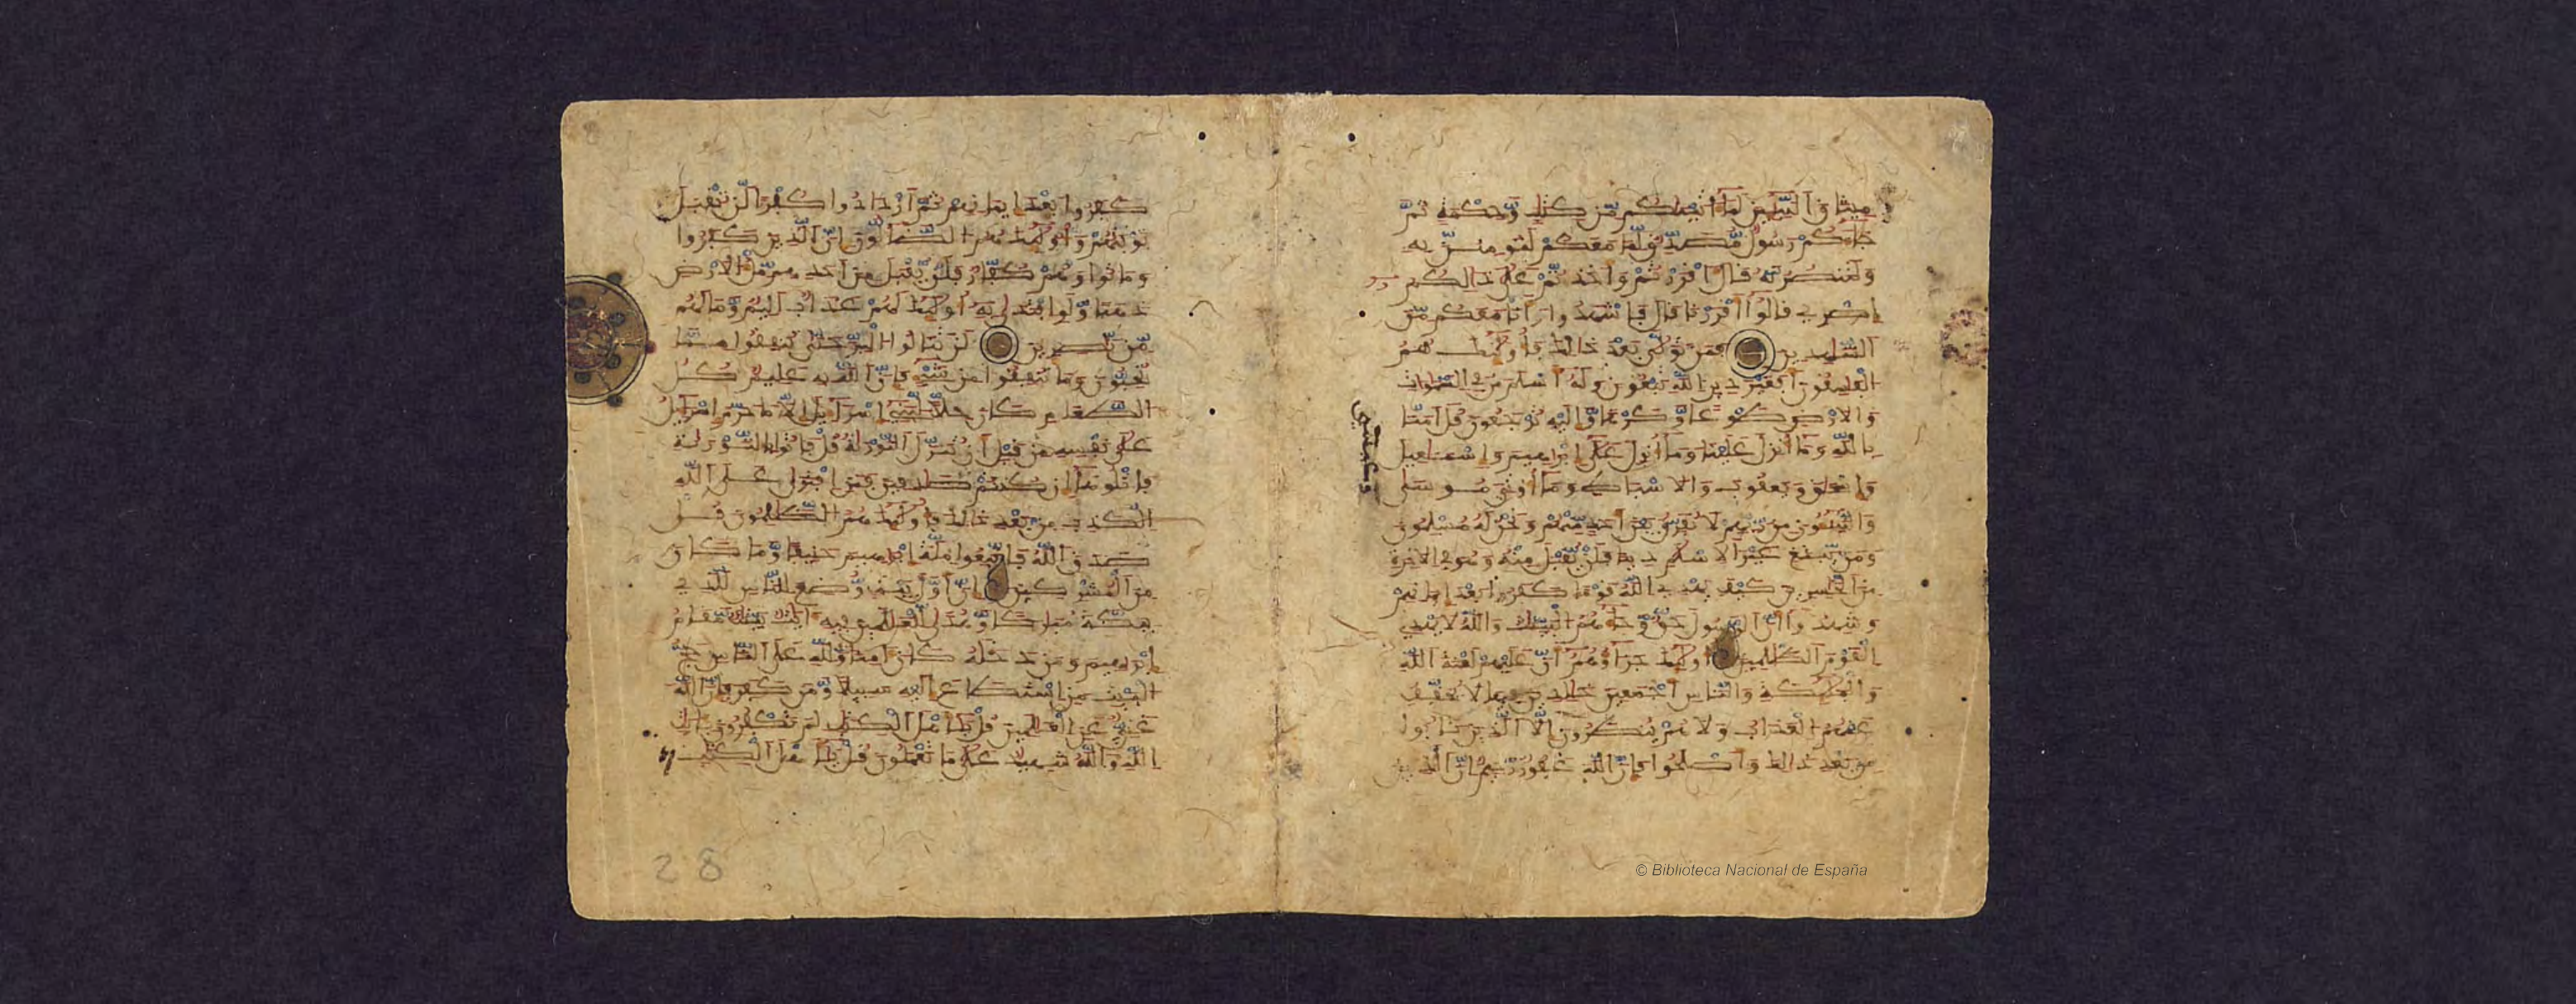 ميثاق النبيين لما اتينكم من كتب وحكمة ثم
جاءكم رسول مصدق لما معكم لتومنن به
ولتنصرنه قال اقررتم واخذتم على ذالكم
اصري قالوا اقررنا قال فاشهدوا وانا معكم من
الشهدين فمن تولى بعد ذالك فاولئك هم
الفسقون افغير دين الله تبغون وله اسلم من في السموات
والارض طوعا وكرها واليه ترجعون قل امنا
بالله وما انزل علينا وما انزل على ابرهيم واسمعيل
واسحق ويعقوب والاسباط وما اوتي موسى
وعيسى
والنبيون من ربهم لا نفرق بين احد منهم ونحن له مسلمون
ومن يبتغ غير الاسلم دينا فلن يقبل منه وهو في الاخرة
من الخسرين كيف يهدي الله قوما كفروا بعد ايمنهم
وشهدوا ان الرسول حق وجاءهم البينت والله لا يهدي
القوم الظلمين اولئك جزاؤهم ان عليهم لعنة الله
والملئكة والناس اجمعين خلدين فيها لا يخفف
عنهم العذاب ولا هم ينظرون الا الذين تابوا
من بعد ذالك واصلحوا فان الله غفور رحيم ان الذين
كفروا بعد ايمنهم ثم ازدادوا كفرا لن تقبل
توبتهم واولئك هم الضالون ان الذين كفروا
وماتوا وهم كفار فلن يقبل من احدهم مل الارض
ذهبا ولو افتدى به اولئك لهم عذاب اليم وما لهم
من نصرين لن تنالوا البر حتى تنفقوا مما
تحبون وما تنفقوا من شيء فان الله به عليم كل
الطعام كان حلا لبني اسراءيل الا ما حرم اسراءيل
على نفسه من قبل ان تنزل التورية قل فاتوا بالتورية
فاتلوها ان كنتم صدقين فمن افترى على الله
الكذب من بعد ذالك فاولئك هم الظلمون قل
صدق الله فاتبعوا ملة ابرهيم حنيفا وما كان
من المشركين ان اول بيت وضع للناس للذي
ببكة مباركا وهدى للعلمين فيه ايت بينت مقام
ابرهيم ومن دخله كان امنا ولله على الناس حج
البيت من استطاع اليه سبيلا ومن كفر فان الله
غني عن العلمين قل ياهل الكتب لم تكفرون بايت
الله والله شهيد على ما تعملون قل ياهل الكتب
28
© Biblioteca Nacional de España